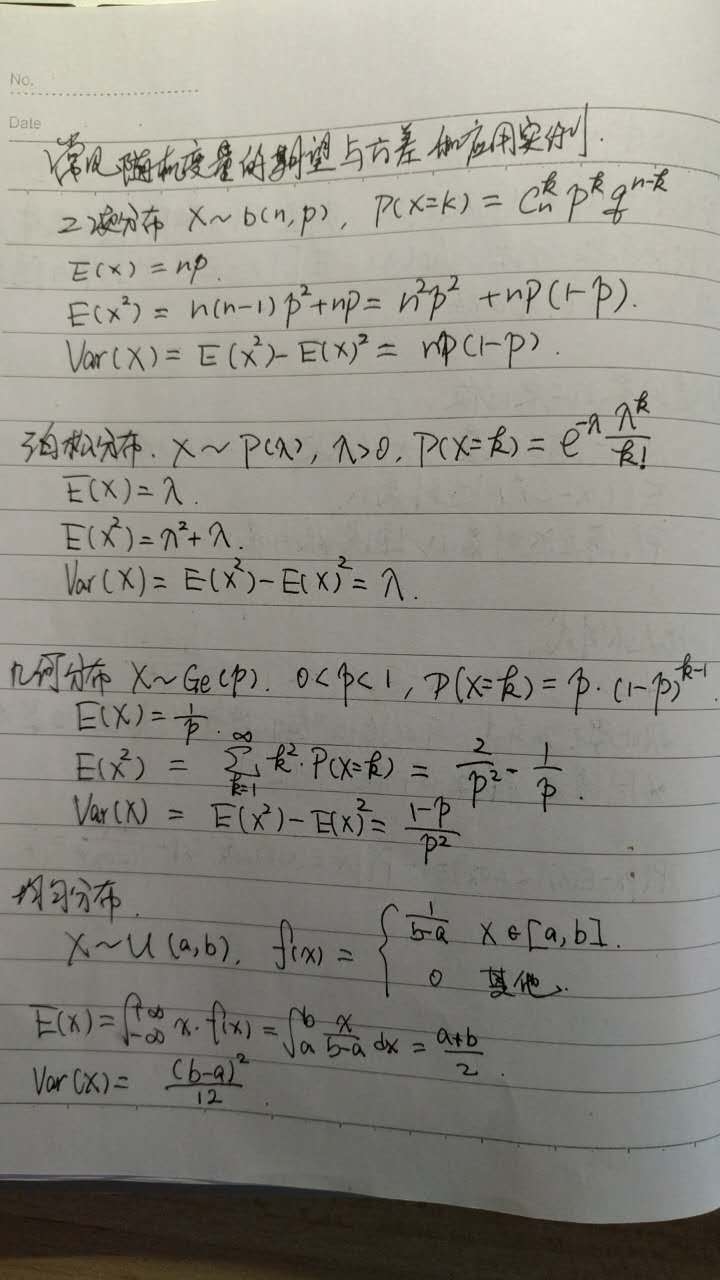 No.
Date
常见随机变量的期望与方差和应用实例.
二项分布 X~b(n,p), P(X=k) = Cₙᵏ pᵏ qⁿ⁻ᵏ
E(X) = np.
E(X²) = n(n-1)p²+np = n²p² +np(1-p).
Var(X) = E(X²)-E(X)² = np(1-p).
泊松分布. X~P(λ), λ>0, P(X=k) = e^{-λ} λᵏ/k!
E(X) = λ.
E(X²) = λ²+λ.
Var(X) = E(X²)-E(X)² = λ.
几何分布 X~Ge(p). 0<p<1, P(X=k) = p·(1-p)ᵏ⁻¹.
E(X) = 1/p.
E(X²) = ∑_{k=1}^{∞} k²·P(X=k) = 2/p² - 1/p.
Var(X) = E(X²)-E(X)² = (1-p)/p²
均匀分布.
X~U(a,b), f(x) = { 1/(b-a) X∈[a,b].
0 其他.
E(X) = ∫_{-∞}^{+∞} x·f(x) = ∫_a^b x/(b-a) dx = (a+b)/2.
Var(X) = (b-a)²/12.